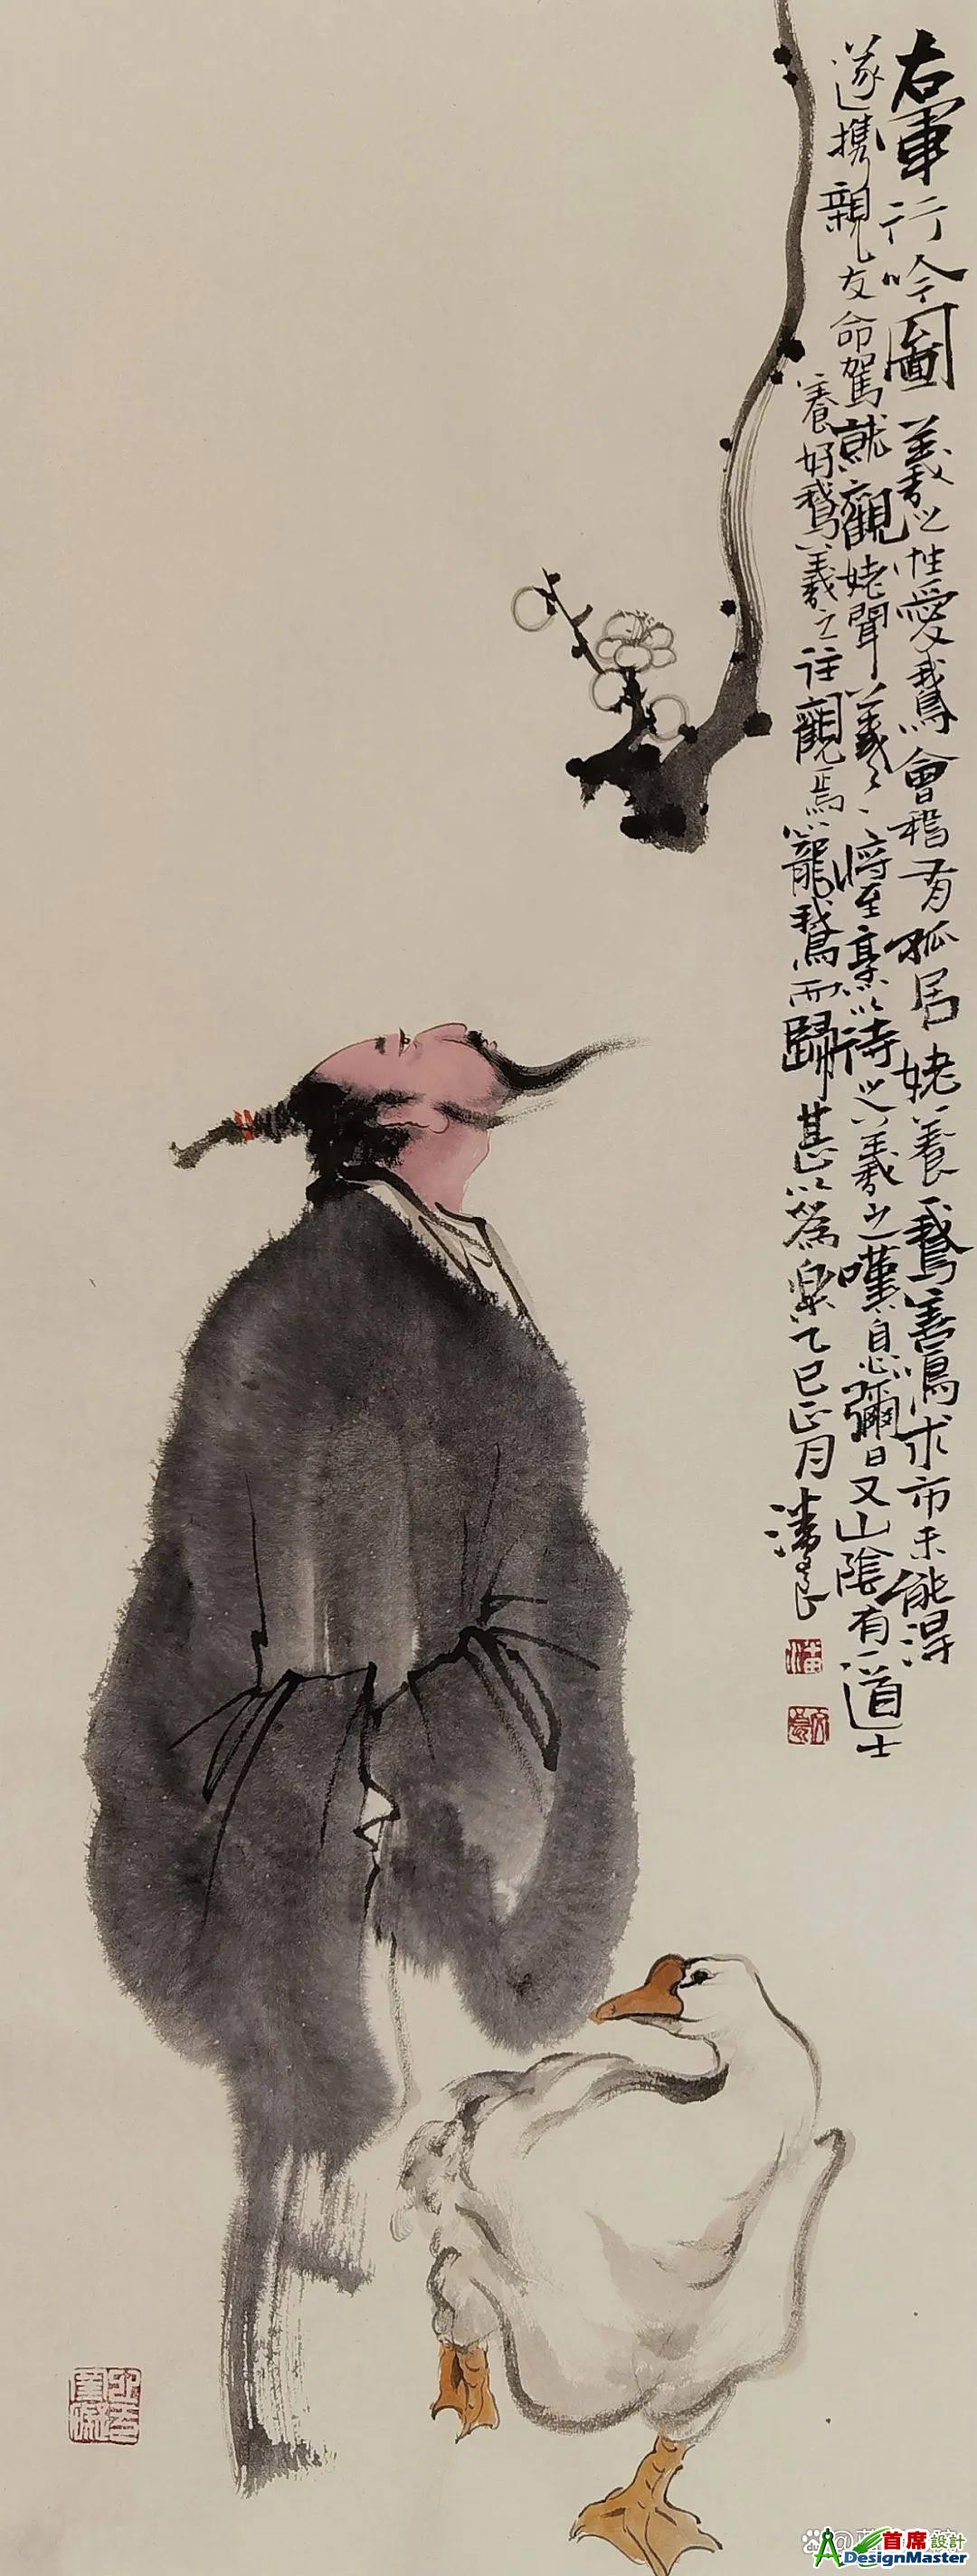 右軍行吟圖 羲之性愛鵝會稽有孤居姥養一鵝善鳴求市未能得
遂携親友命駕就觀姥聞羲之將至烹以待之羲之嘆息彌日又山陰有一道士
養好鵝羲之往觀焉籠鵝而歸甚以為樂乙巳正月
潘良
首席設計
DesignMaster